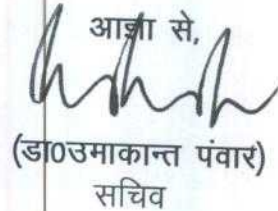 आज्ञा से,
(डा0उमाकान्त पंवार)
सचिव